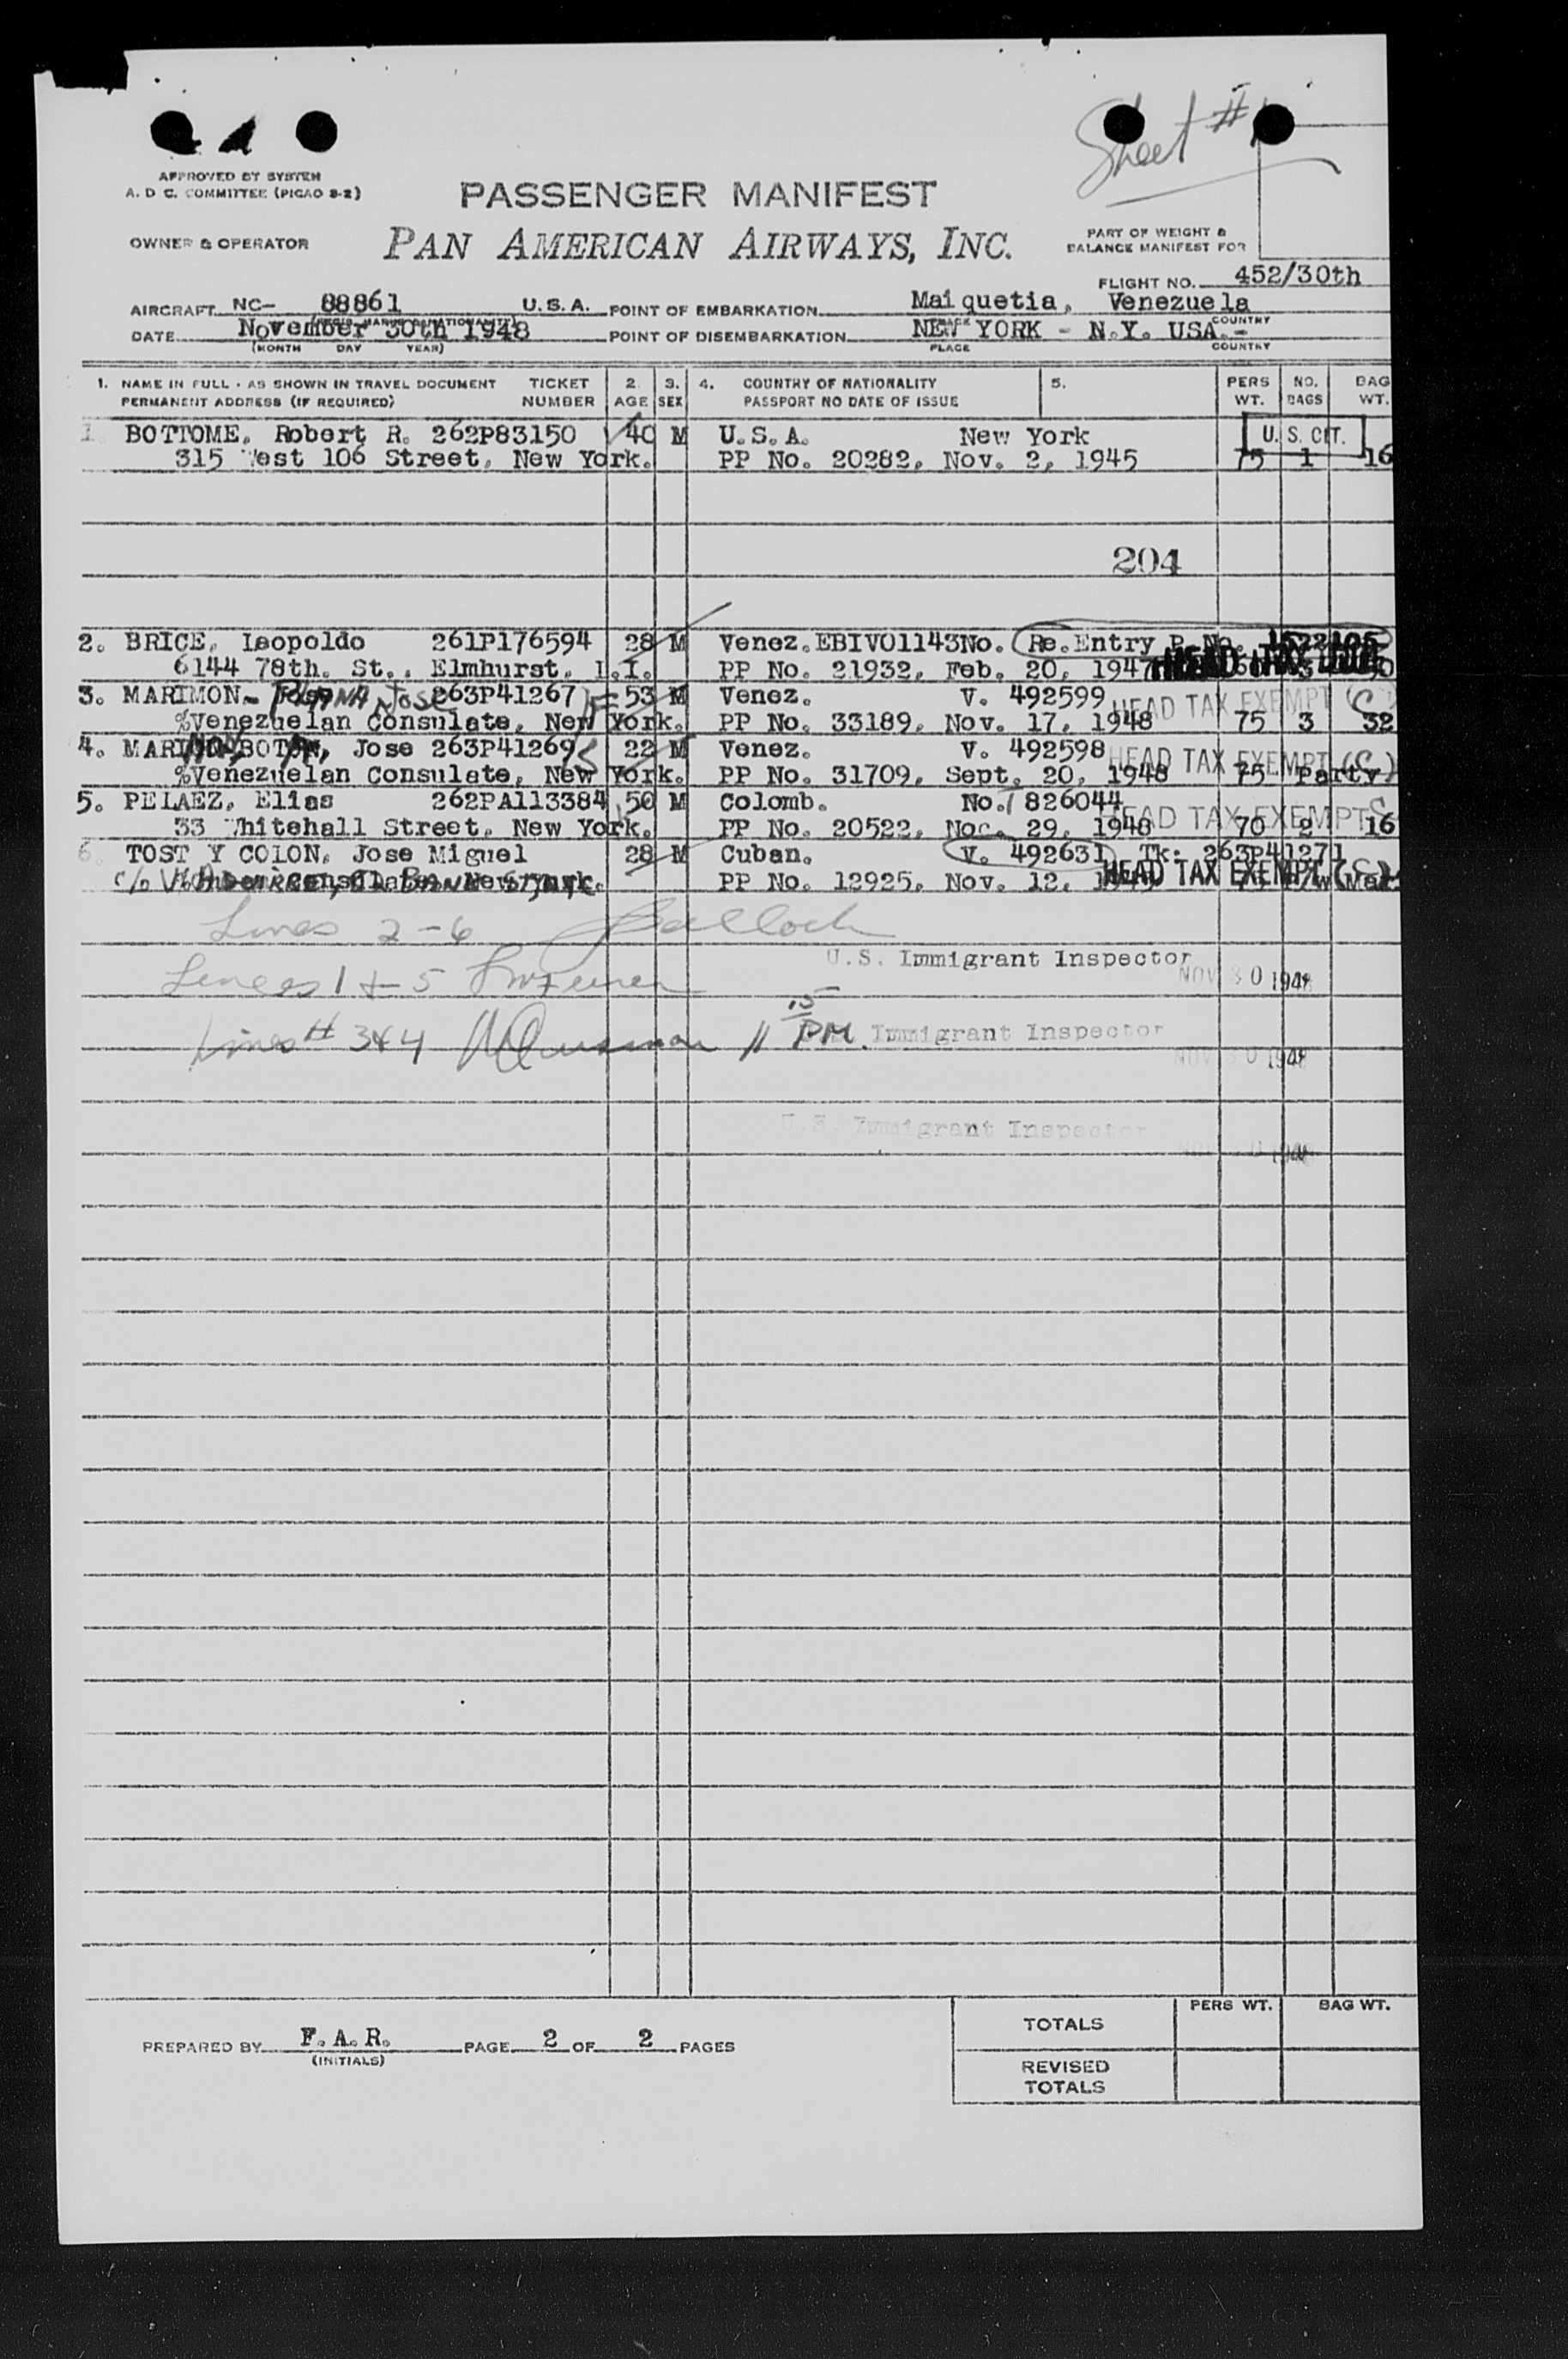 Sheet #
APPROVED BY SYSTEM
A. D C. COMMITTEE (PICAO S-2)
PASSENGER MANIFEST
OWNER & OPERATOR
PAN AMERICAN AIRWAYS, INC.
PART OF WEIGHT &
BALANCE MANIFEST FOR
FLIGHT NO. 452/30th
AIRCRAFT NC- 88861 U.S.A. POINT OF EMBARKATION Maiquetia, Venezuela
DATE November 30th 1948 POINT OF DISEMBARKATION NEW YORK - N.Y. USA.-
(MONTH DAY YEAR) PLACE COUNTRY
1. NAME IN FULL - AS SHOWN IN TRAVEL DOCUMENT TICKET 2. 3. 4. COUNTRY OF NATIONALITY 5. PERS NO. BAG
PERMANENT ADDRESS (IF REQUIRED) NUMBER AGE SEX PASSPORT NO DATE OF ISSUE WT. BAGS WT.
1. BOTTOME, Robert R. 262P83150 40 M U.S.A. New York U. S. CIT.
315 West 106 Street, New York. PP No. 20282, Nov. 2, 1945 75 1 16
204
2. BRICE, Leopoldo 261P176594 28 M Venez. EBIVO1143No. Re.Entry P.No. 1522105
6144 78th. St., Elmhurst, L.I. PP No. 21932, Feb. 20, 1947 HEAD TAX 3
3. MARIMON- Jose 263P41267 53 M Venez. V. 492599 HEAD TAX EXEMPT (C)
%Venezuelan Consulate, New York. PP No. 33189, Nov. 17, 1948 75 3 32
4. Jose 263P41269 22 M Venez. V. 492598 HEAD TAX EXEMPT (C)
%Venezuelan Consulate, New York. PP No. 31709, Sept. 20, 1948 75 Party
5. PELAEZ, Elias 262PA113384 50 M Colomb. No. 826044 HEAD TAX EXEMPT C
33 Whitehall Street, New York. PP No. 20522, Noc. 29, 1948 70 2 16
6. TOST Y COLON, Jose Miguel 28 M Cuban. V. 492631 Tk: 263P41271
c/o PP No. 12925, Nov. 12, HEAD TAX EXEMPT (C)
Lines 2-6
U.S. Immigrant Inspector
Lines 1 + 5
NOV 30 1948
Lines # 3&4 11 15 PM. Immigrant Inspector
NOV 30 1948
U.S. Immigrant Inspector
NOV 30 1948
PERS WT. BAG WT.
TOTALS
PREPARED BY F. A. R. PAGE 2 OF 2 PAGES
(INITIALS)
REVISED
TOTALS